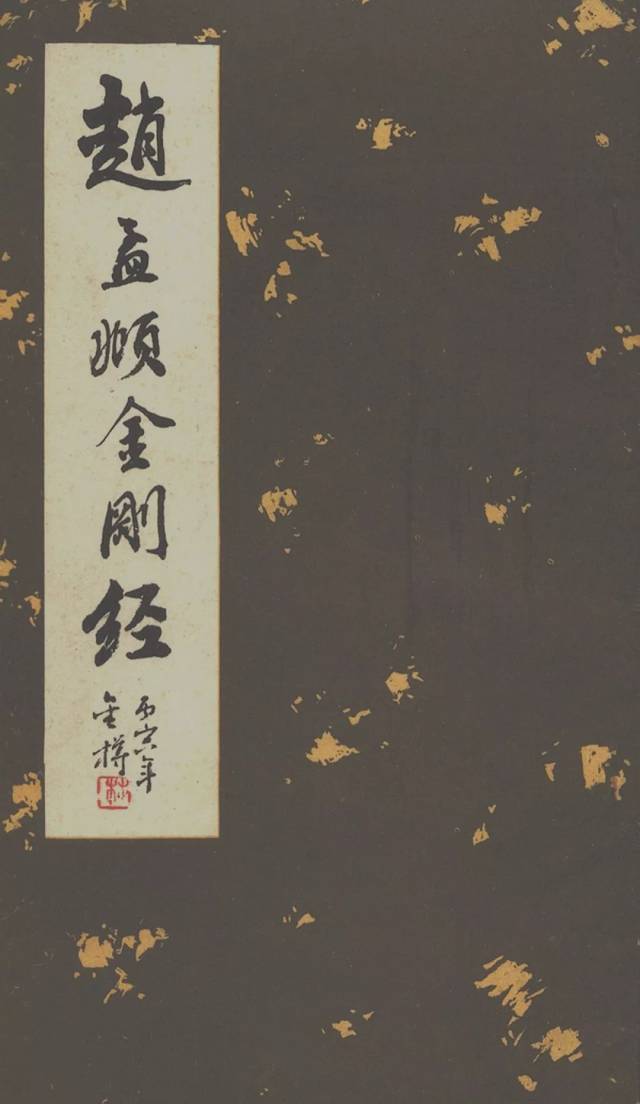 趙孟頫金剛经
丙寅年
金樽